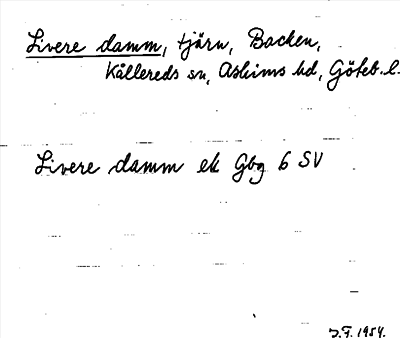 Livere damm, tjärn, Backen,
Kållereds sn, Askims hd, Göteb. l.
Livere damm ek Gbg 6 SV
J.F. 1954.